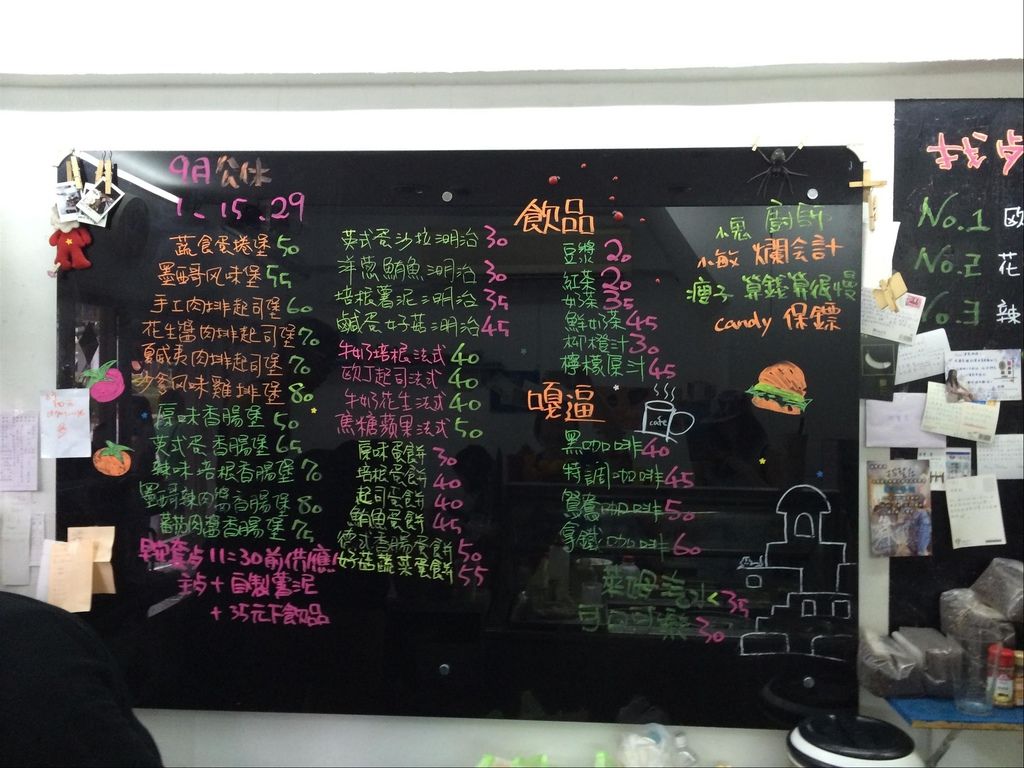 9月公休
1、15、29
蔬食蛋捲堡 50
墨西哥风味堡 55
手工肉排起司堡 60
花生醬肉排起司堡 70
夏威夷肉排起司堡 70
沙爹风味雞排堡 80
原味香腸堡 50
英式蛋香腸堡 65
辣味培根香腸堡 70
墨式辣肉醬香腸堡 80
蕃茄肉醬香腸堡 75
套歺 11:30前供應
主歺+自製薯泥
+35元下飲品
英式蛋沙拉三明治 30
洋蔥鮪魚三明治 30
培根薯泥三明治 35
鹹蛋好菇三明治 45
牛奶培根法式 40
欧丁起司法式 40
牛奶花生法式 40
焦糖蘋果法式 50
原味蛋餅 30
培根蛋餅 40
起司蛋餅 40
鮪魚蛋餅 45
德式香腸蛋餅 50
好菇蔬菜蛋餅 55
飲品
豆漿 20
紅茶 20
奶茶 35
鮮奶茶 45
柳橙汁 30
檸檬原汁 45
嘎逼
cafe
黑咖啡 40
特調咖啡 45
鴛鴦咖啡 50
拿鐵咖啡 60
萊姆汽水 35
可可可樂 30
小鬼 廚師
小敏 爛会計
瘦子 算錢算很慢
candy 保鏢
No.1 欧
No.2 花
No.3 辣